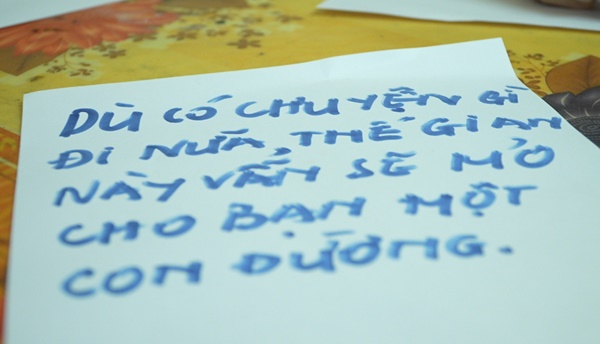 DÙ CÓ CHUYỆN GÌ
ĐI NỮA, THẾ GIAN
NÀY VẪN SẼ MỞ
CHO BẠN MỘT
CON ĐƯỜNG.